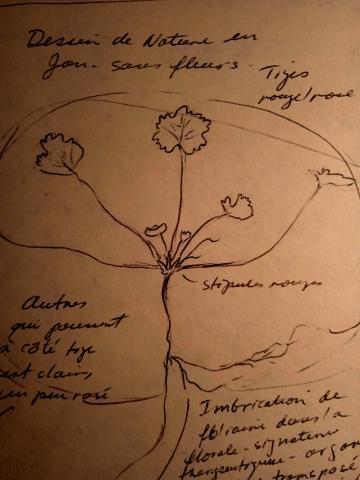 Dessin de Nature en
Jan - sans fleurs -
Tiges
rouge/rose
stipules rouges
Autres
qui poussent
à côté tige
vert clair
un peu rosé
Imbrication de
foliaire dans la
florale - signature